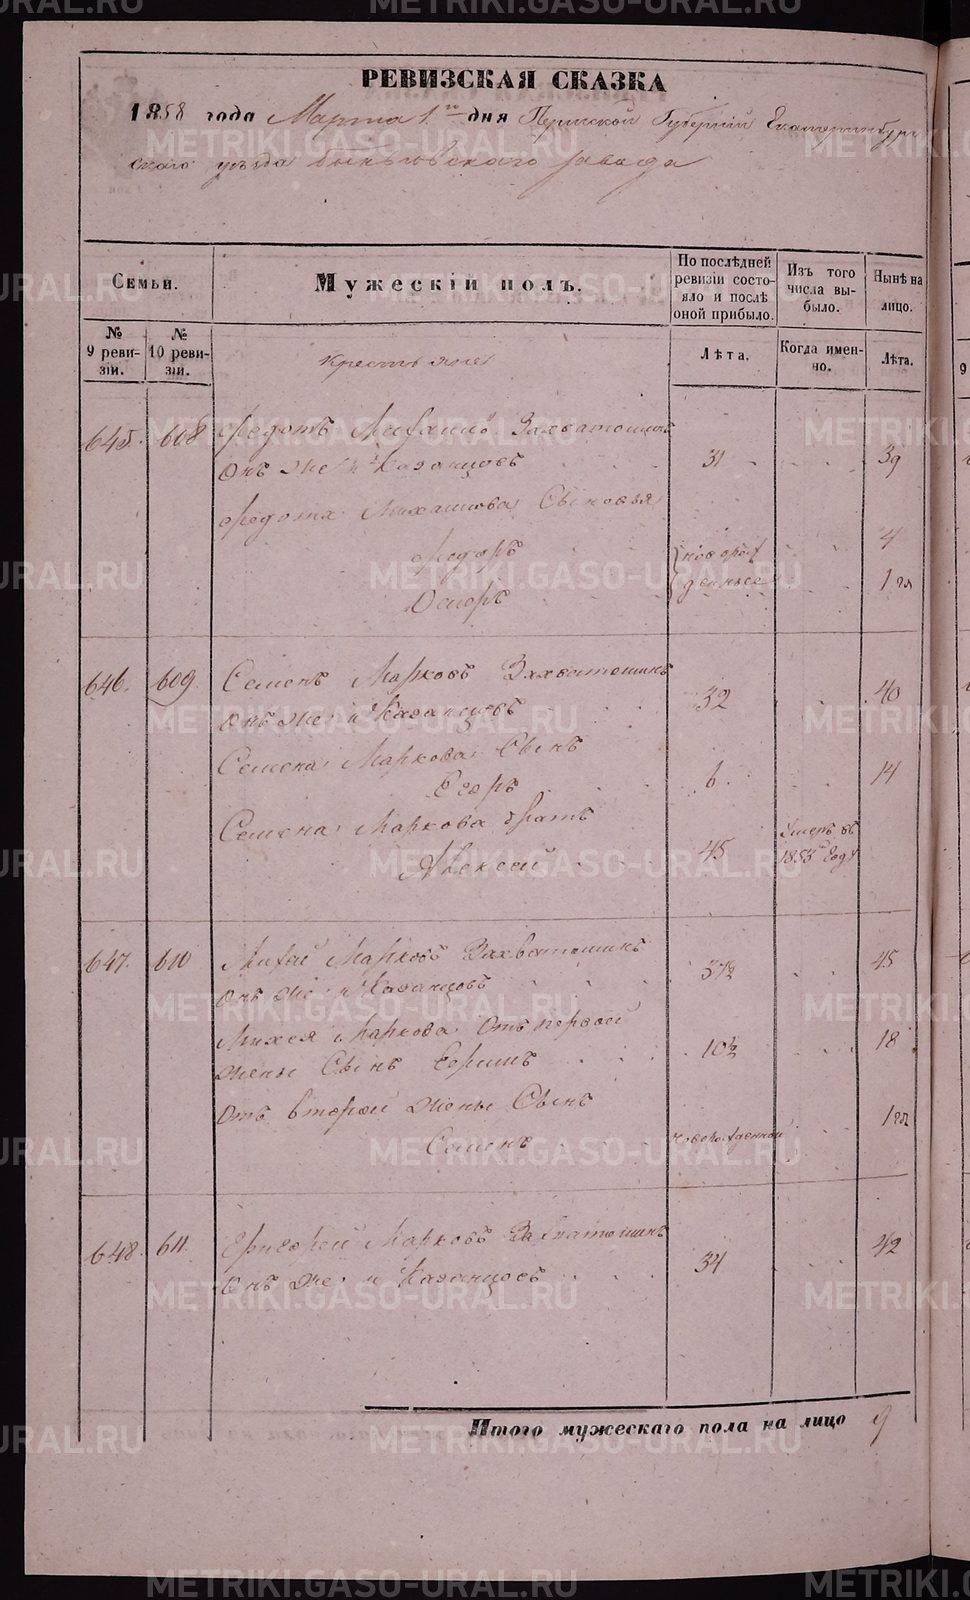 РЕВИЗСКАЯ СКАЗКА
1858 года Марта 1го дня Пермской Губернии Екатеринбург
скаго уѣзда Быньговскаго завода
Семьи.
Мужескій полъ.
По послѣдней ревизіи состояло и послѣ оной прибыло.
Изъ того числа выбыло.
Нынѣ на лицо.
№ 9 ревизіи.
№ 10 ревизіи.
крестьяне
Лѣта.
Когда именно.
Лѣта.
645. 608 Федотъ Михайловъ Захватошинъ
Онъ же и Казанцовъ 31 39
Федота Михайлова Сыновья
Федоръ новорож 4
Осипъ денные 1 го
646. 609. Семенъ Марковъ Захватошинъ
Онъ же и Казанцовъ 32 40
Семена Маркова Сынъ
Егоръ 6 14
Семена Маркова братъ Умеръ въ
Алексей 45 1853мъ Году
647. 610 Михей Марковъ Захватошинъ
Онъ же и Казанцовъ 37½ 45
Михея Маркова Отъ первой
жены Сынъ Ефимъ 10½ 18
Отъ второй жены Сынъ 1 го
Семенъ новорожденной
648. 611. Григорей Марковъ Захватошинъ
Онъ же и Казанцовъ 34 42
Итого мужескаго пола на лицо 9
METRIKI.GASO-URAL.RU